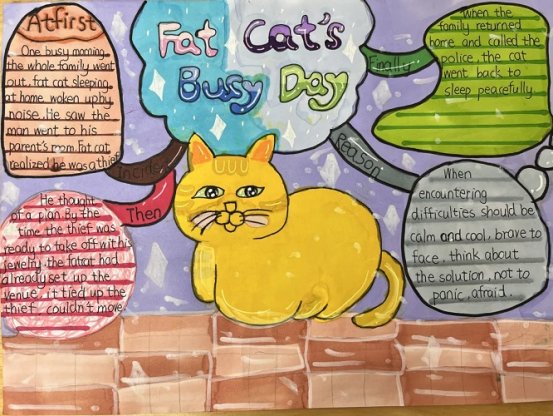 Fat Cat's
Busy Day
Atfirst
One busy morning
the whole family went
out. fat cat sleeping
at home, woken up by
noise. He saw the
man went to his
parent's room. Fat cat
realized he was a thief
Incide
Then
He thought
of a plan. By the
time the thief was
ready to take off with his
jewelry, the fat cat had
already set up the
venue, it tied up the
thief couldn't move
Finally
When the
family returned
home and called the
police, the cat
went back to
sleep peacefully
Reason
When
encountering
difficulties should be
calm and cool, brave to
face, think about
the solution, not to
panic, afraid.